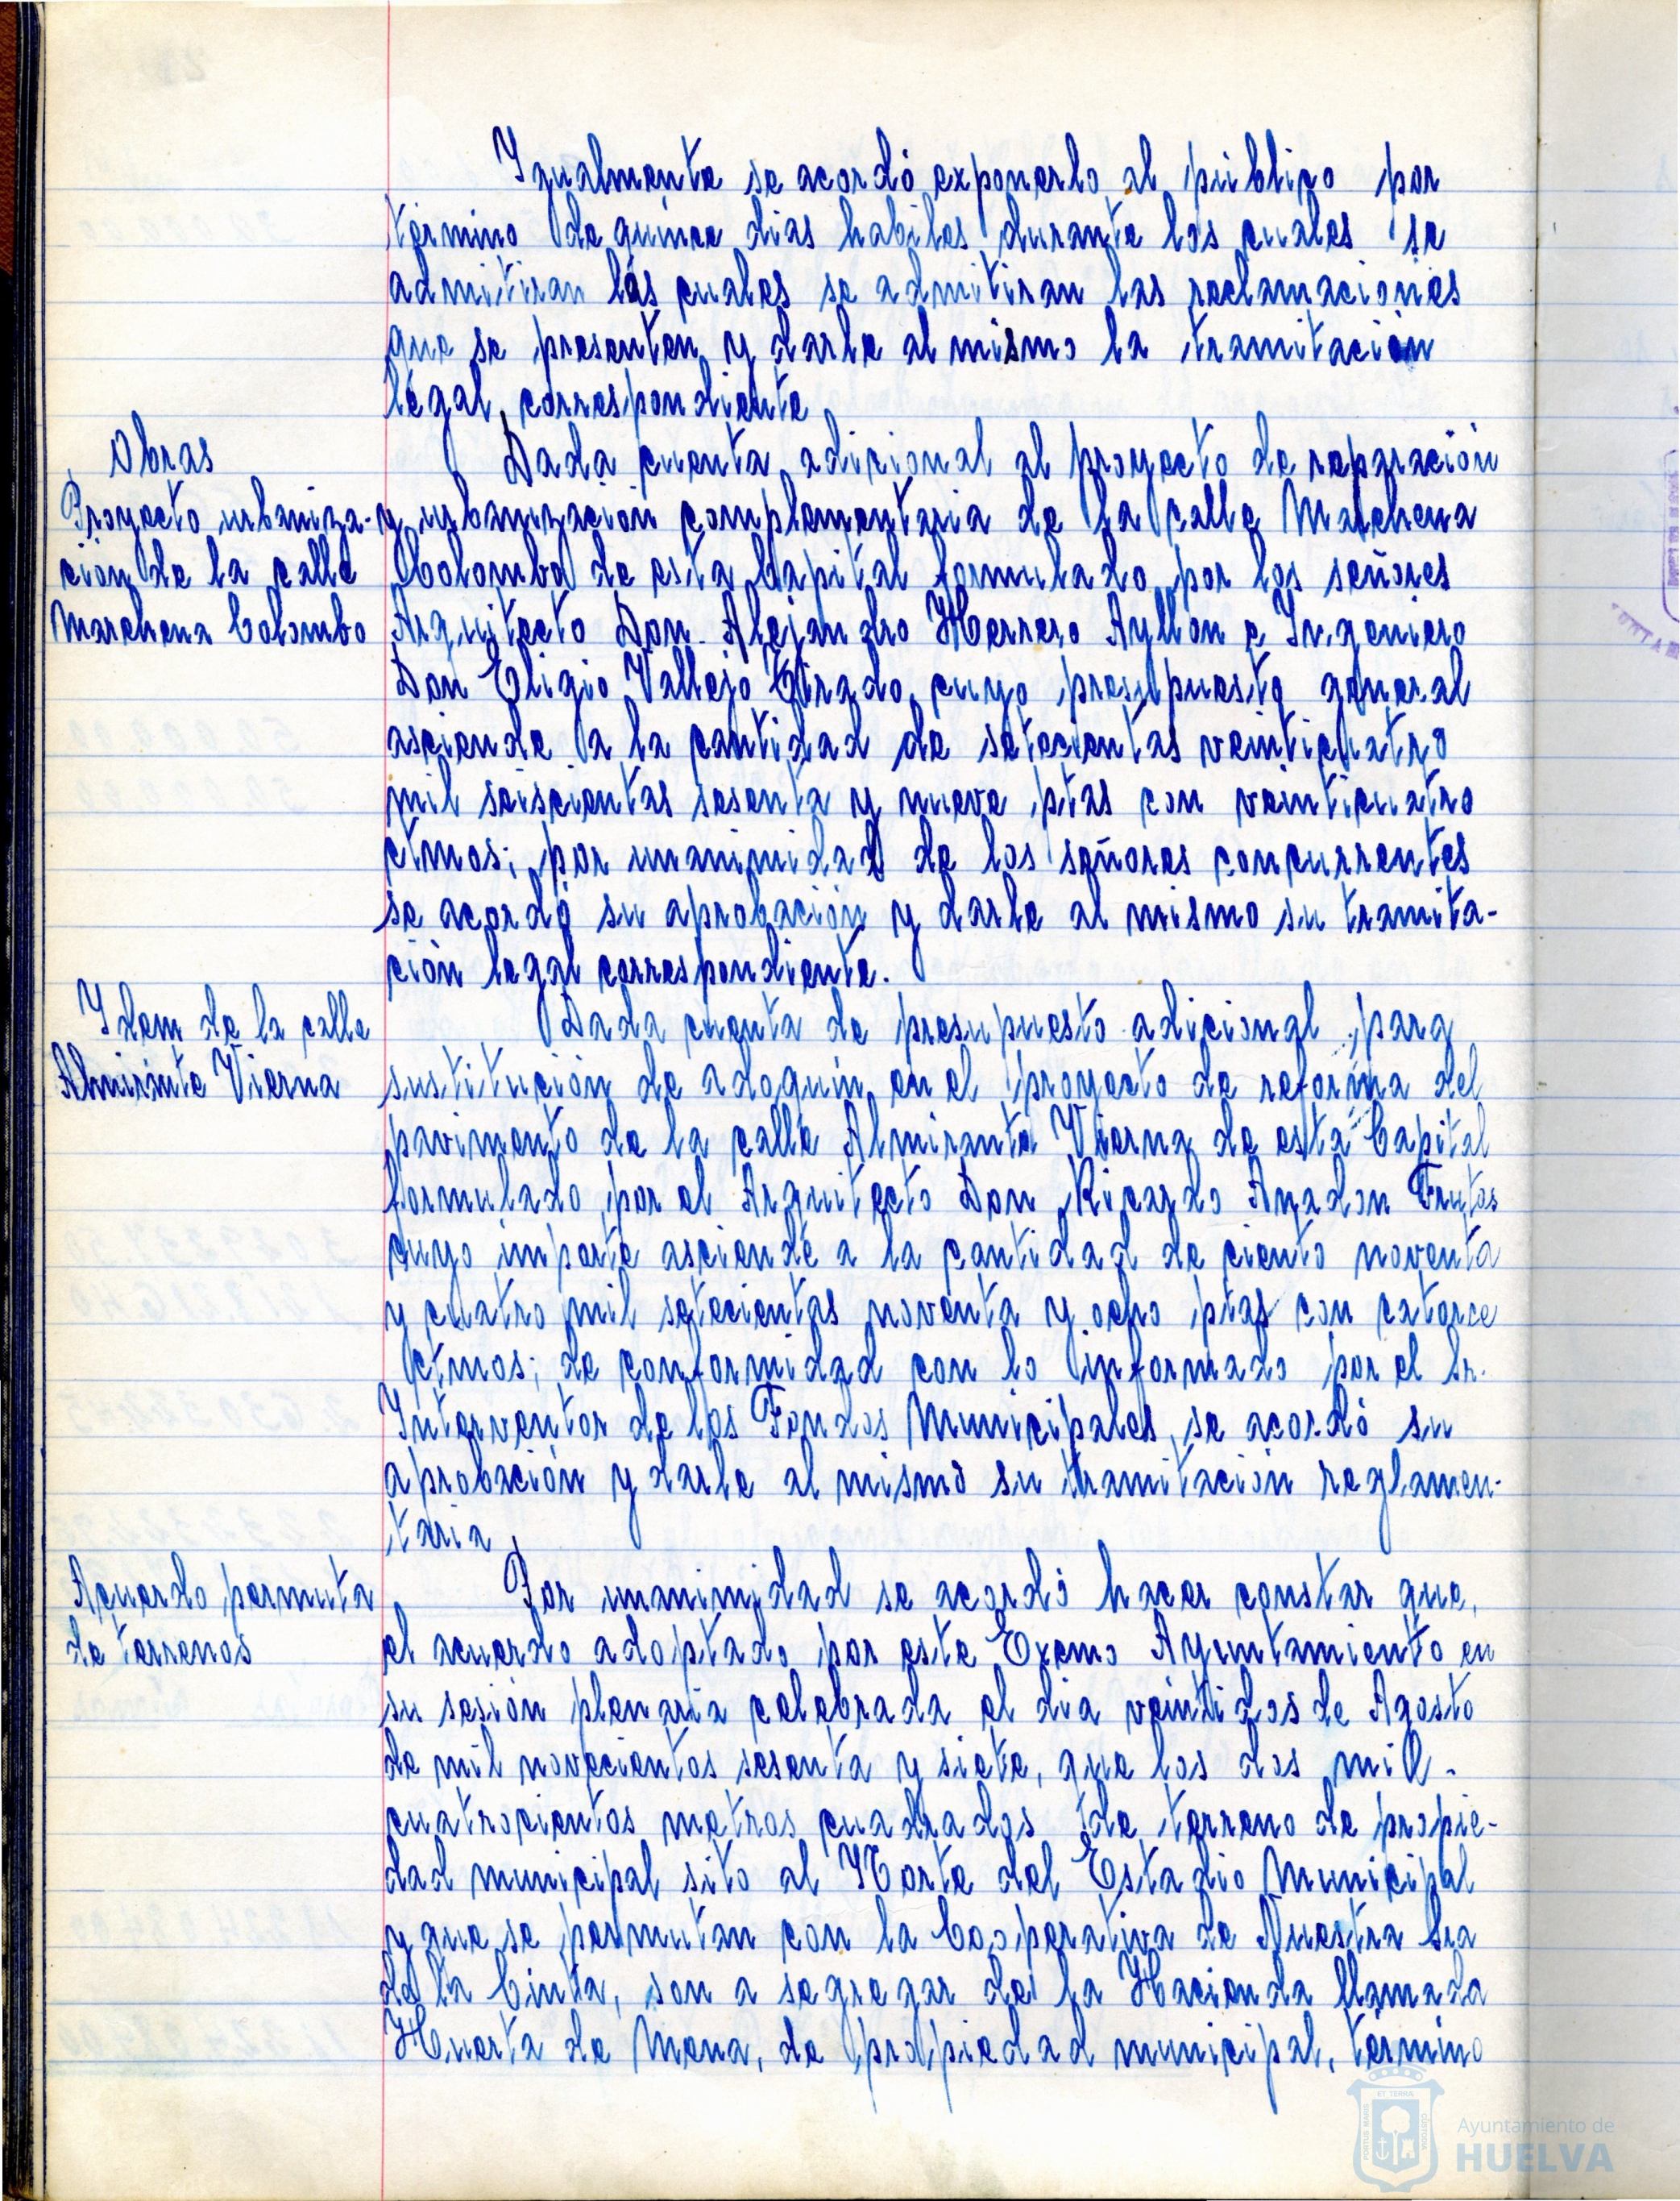 Igualmente se acordó exponerlo al público por
término de quince dias habiles durante los cuales se
admitiran las cuales se admitiran las reclamaciones
que se presenten y darle al mismo la tramitación
legal correspondiente
Obras
Proyecto urbaniza-
ción de la calle
Marchena Colombo
Dada cuenta adicional al proyecto de reparación
y urbanización complementaria de la calle Marchena
Colombo de esta Capital formulado por los señores
Arquitecto Don Alejandro Herrero Ayllon e Ingeniero
Don Eligio Vallejo Tirado, cuyo presupuesto general
asciende a la cantidad de setecientas veinticuatro
mil seiscientas sesenta y nueve ptas con veinticuatro
ctmos; por unanimidad de los señores concurrentes
se acordó su aprobación y darle al mismo su tramita-
ción legal correspondiente.
Idem de la calle
Almirante Vierna
Dada cuenta de presupuesto adicional para
sustitución de adoquín en el proyecto de reforma del
pavimento de la calle Almirante Vierna de esta Capital
formulado por el Arquitecto Don Ricardo Anadon Frutos
cuyo importe asciende a la cantidad de ciento noventa
y cuatro mil setecientas noventa y ocho ptas con catorce
ctmos; de conformidad con lo informado por el Sr.
Interventor de los Fondos Municipales, se acordó su
aprobación y darle al mismo su tramitación reglamen-
taria
Acuerdo permuta
de terrenos
Por unanimidad se acordó hacer constar que,
el acuerdo adoptado por este Excmo Ayuntamiento en
su sesión plenaria celebrada el dia veintidos de Agosto
de mil novecientos sesenta y siete, que los dos mil
cuatrocientos metros cuadrados de terreno de propie-
dad municipal sito al Norte del Estadio Municipal
y que se permutan con la Cooperativa de Nuestra Sra
de la Cinta, son a segregar de la Hacienda llamada
Huerta de Mena, de propiedad municipal, término
Ayuntamiento de
HUELVA